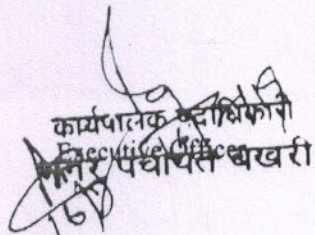 कार्यपालक पदाधिकारी
Executive Officer
नगर पंचायत बखरी